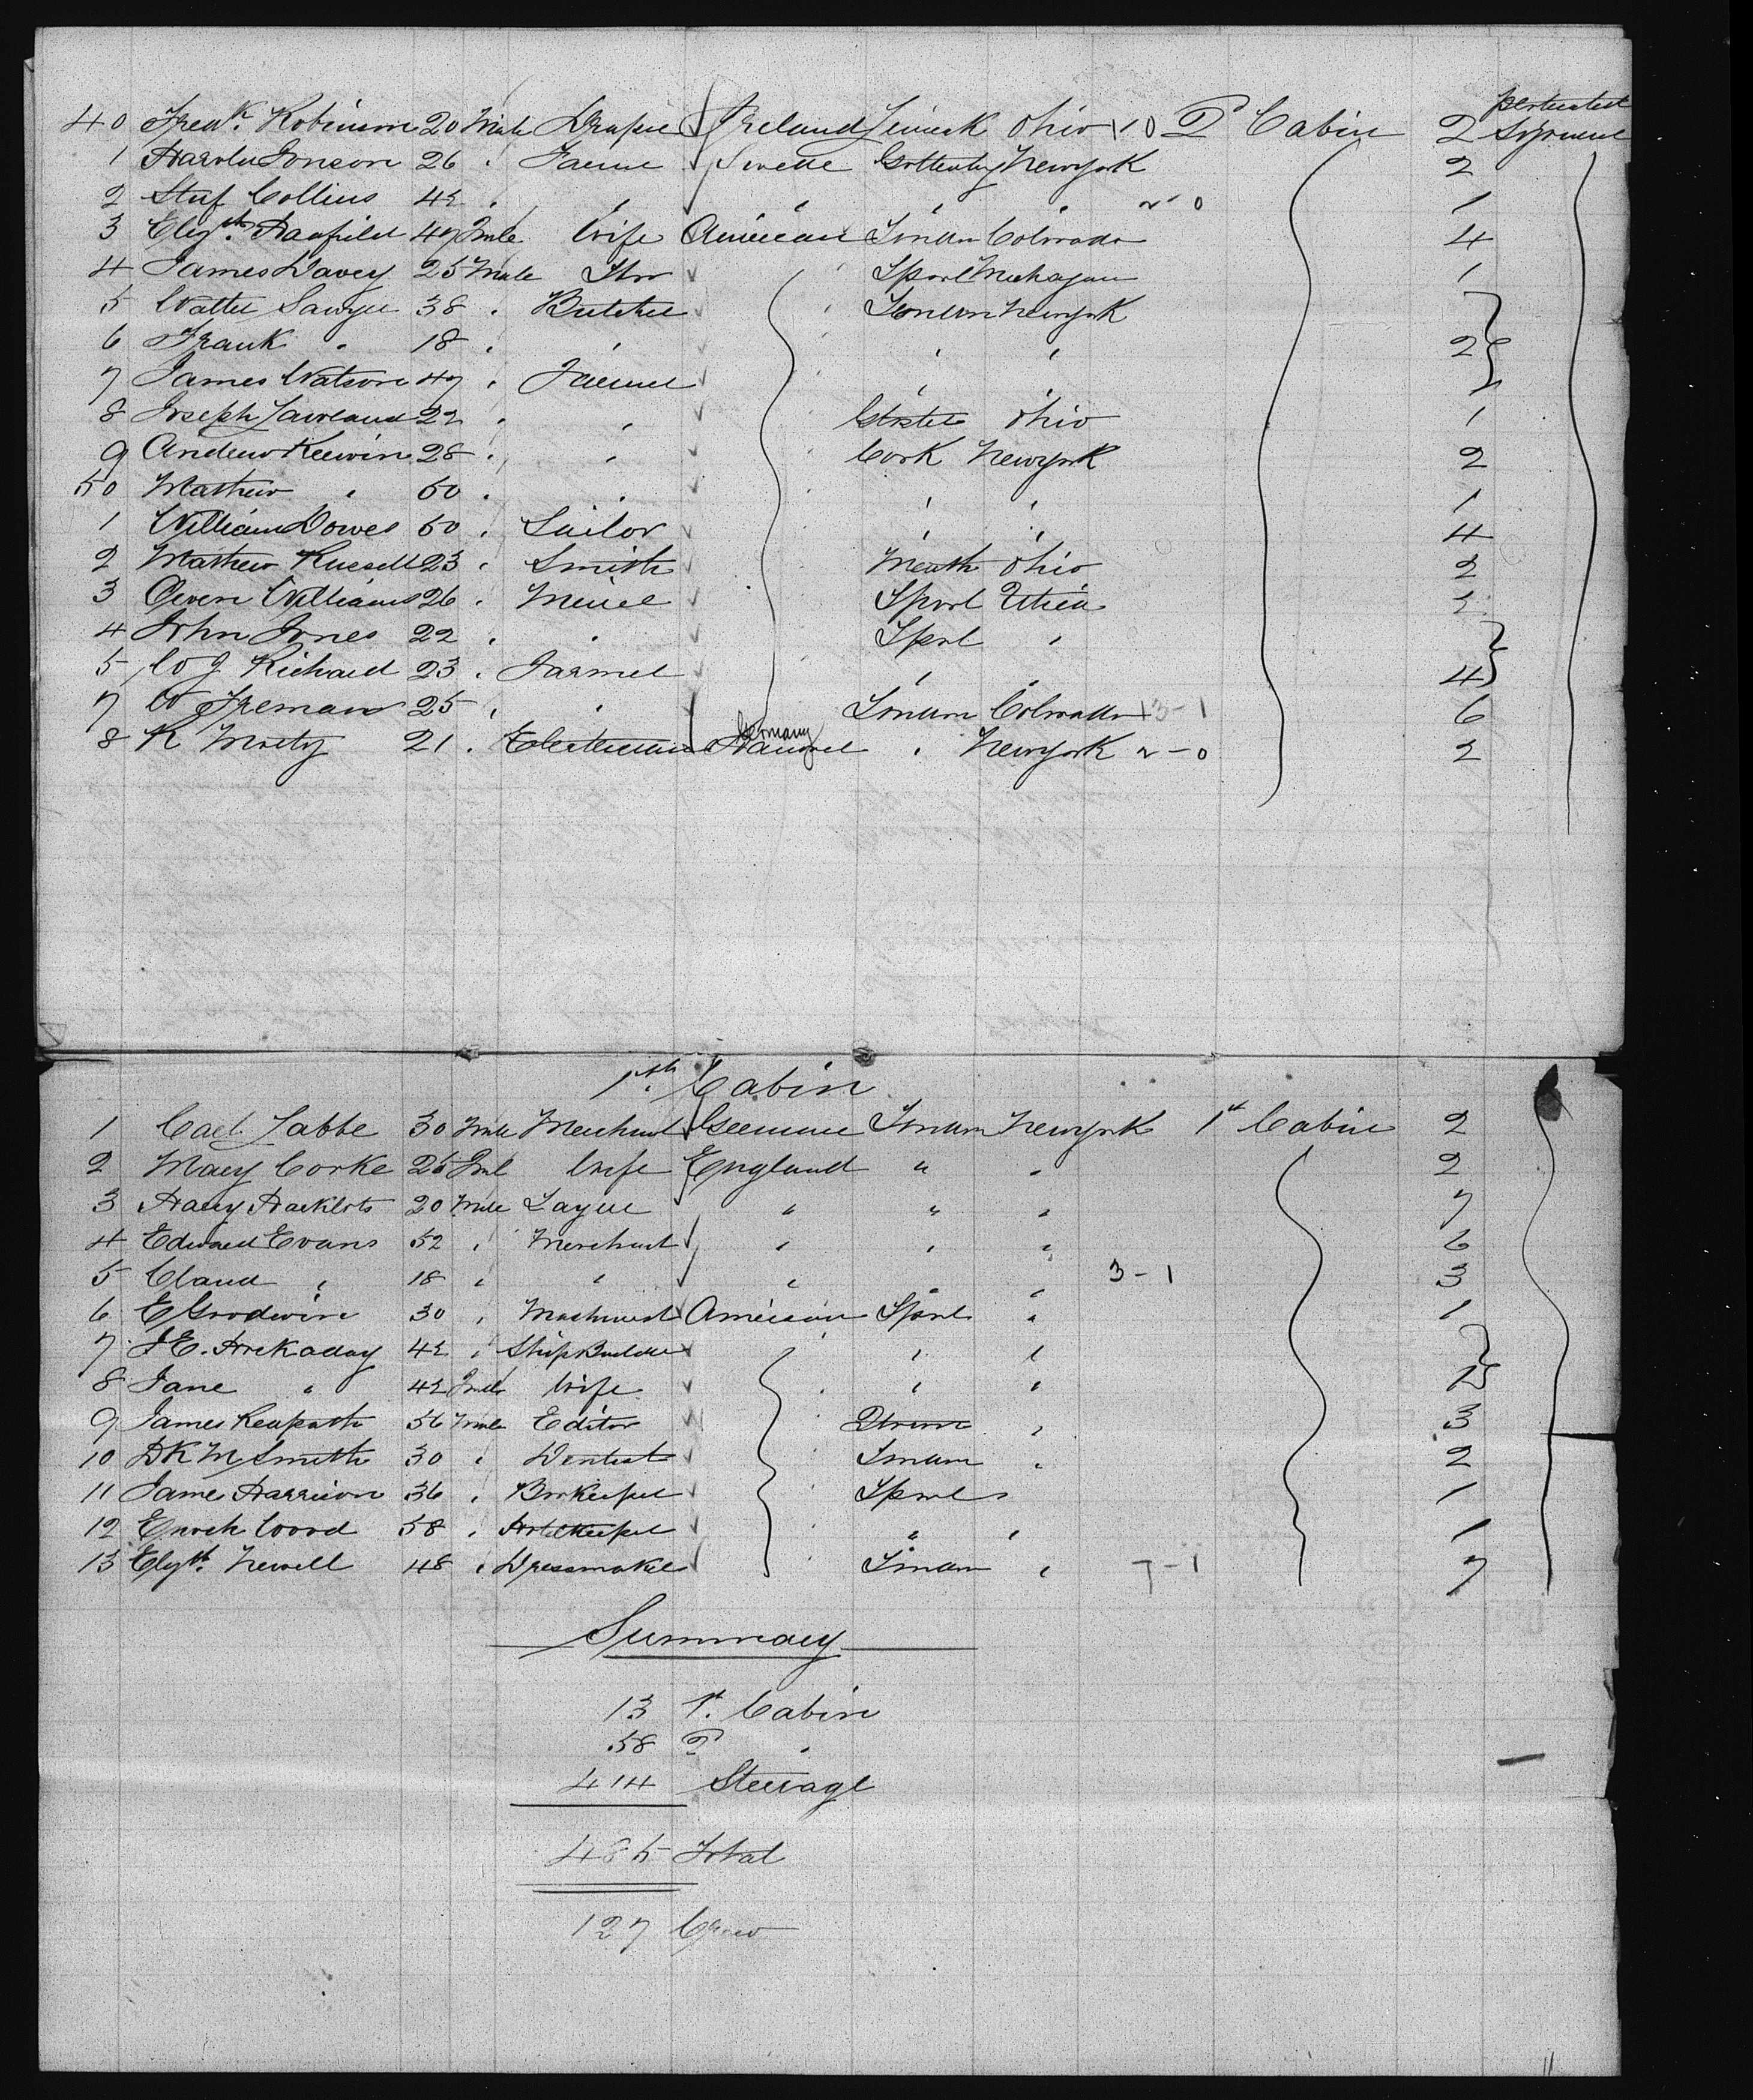 40 Fredk. Robinson 20 Male Draper Ireland Limerick Ohio 10 2d Cabin 2 protracted Sojourn
1 Harold Jonson 26 " Farmer Swede Gottenbg Newyork 2
2 Collins 42 " " " " " 2-0 1
3 Elizth. 47 Fmle Wife American London Colorado 4
4 James Davey 25 Male Lpool Michagan 1
5 Walter Sawyer 38 " Butcher London Newyork
6 Frank " 18 " " " " 2
7 James Watson 47 " Farmer " "
8 Joseph 22 " " Ohio 1
9 Andrew Keewin 28 " " Cork Newyork 2
50 Mathew " 50 " " " " 1
1 William Dowes 50 " Sailor " " 4
2 Mathew Russell 23 " Smith Meath Ohio 2
3 Owen Williams 26 " Miner Lpool Utica
4 John Jones 22 " " Lpool "
5 W J Richard 23 " Farmer " " 4
7 W Freman 25 " " London Colorado 3-1 6
8 R 21 " Electrician Germany " Newyork 2-0 2
1st. Cabin
1 Carl Labbe 30 Male Merchant German London Newyork 1st Cabin 2
2 Mary Corke 25 Fml Wife England " " 2
3 Harry 20 Male " " " 7
4 Edward Evans 52 " Merchant " " " 6
5 Claud " 18 " " " " 3-1 3
6 E Goodwin 30 " Machinist American Lpool " 1
7 J E. Hockaday 42 " Ship Builder " "
8 Jane " 42 Fmle Wife " "
9 James 56 Male Editor " 3
10 Smith 30 " Dentist London " 2
11 James Harrison 36 " Bookeeper Lpool " 1
12 Enoch Wood 58 " Hotelkeeper " " 1
13 Elizth. Newell 48 " Dressmaker London " 7-1 7
Summary
13 1st. Cabin
58 2d "
414 Steerage
485 Total
127 Crew